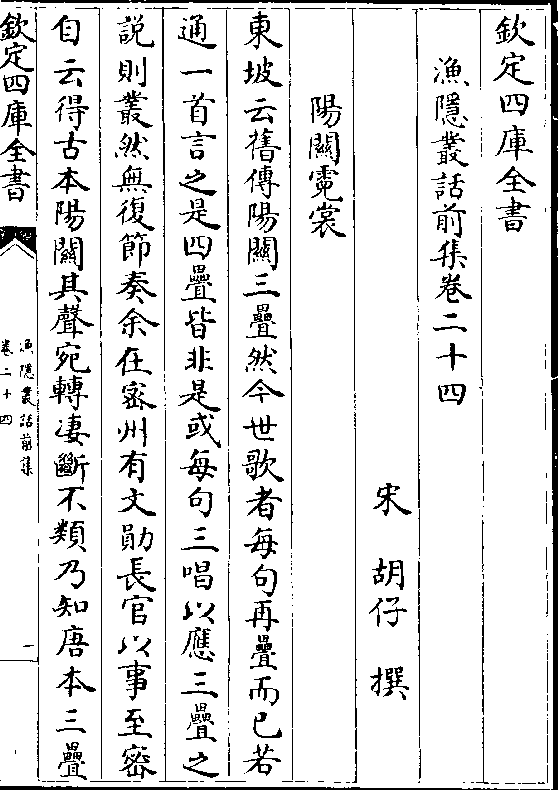 欽定四庫全書
漁隱叢話前集卷二十四
宋 胡仔 撰
陽關霓裳
東坡云舊傳陽關三疊然今世歌者每句再疊而已若
通一首言之是四疊皆非是或每句三唱以應三疊之
說則叢然無復節奏余在密州有文勛長官以事至密
自云得古本陽關其聲宛轉凄斷不類乃知唐本三疊
欽定四庫全書
漁隱叢話前集
卷二十四
一